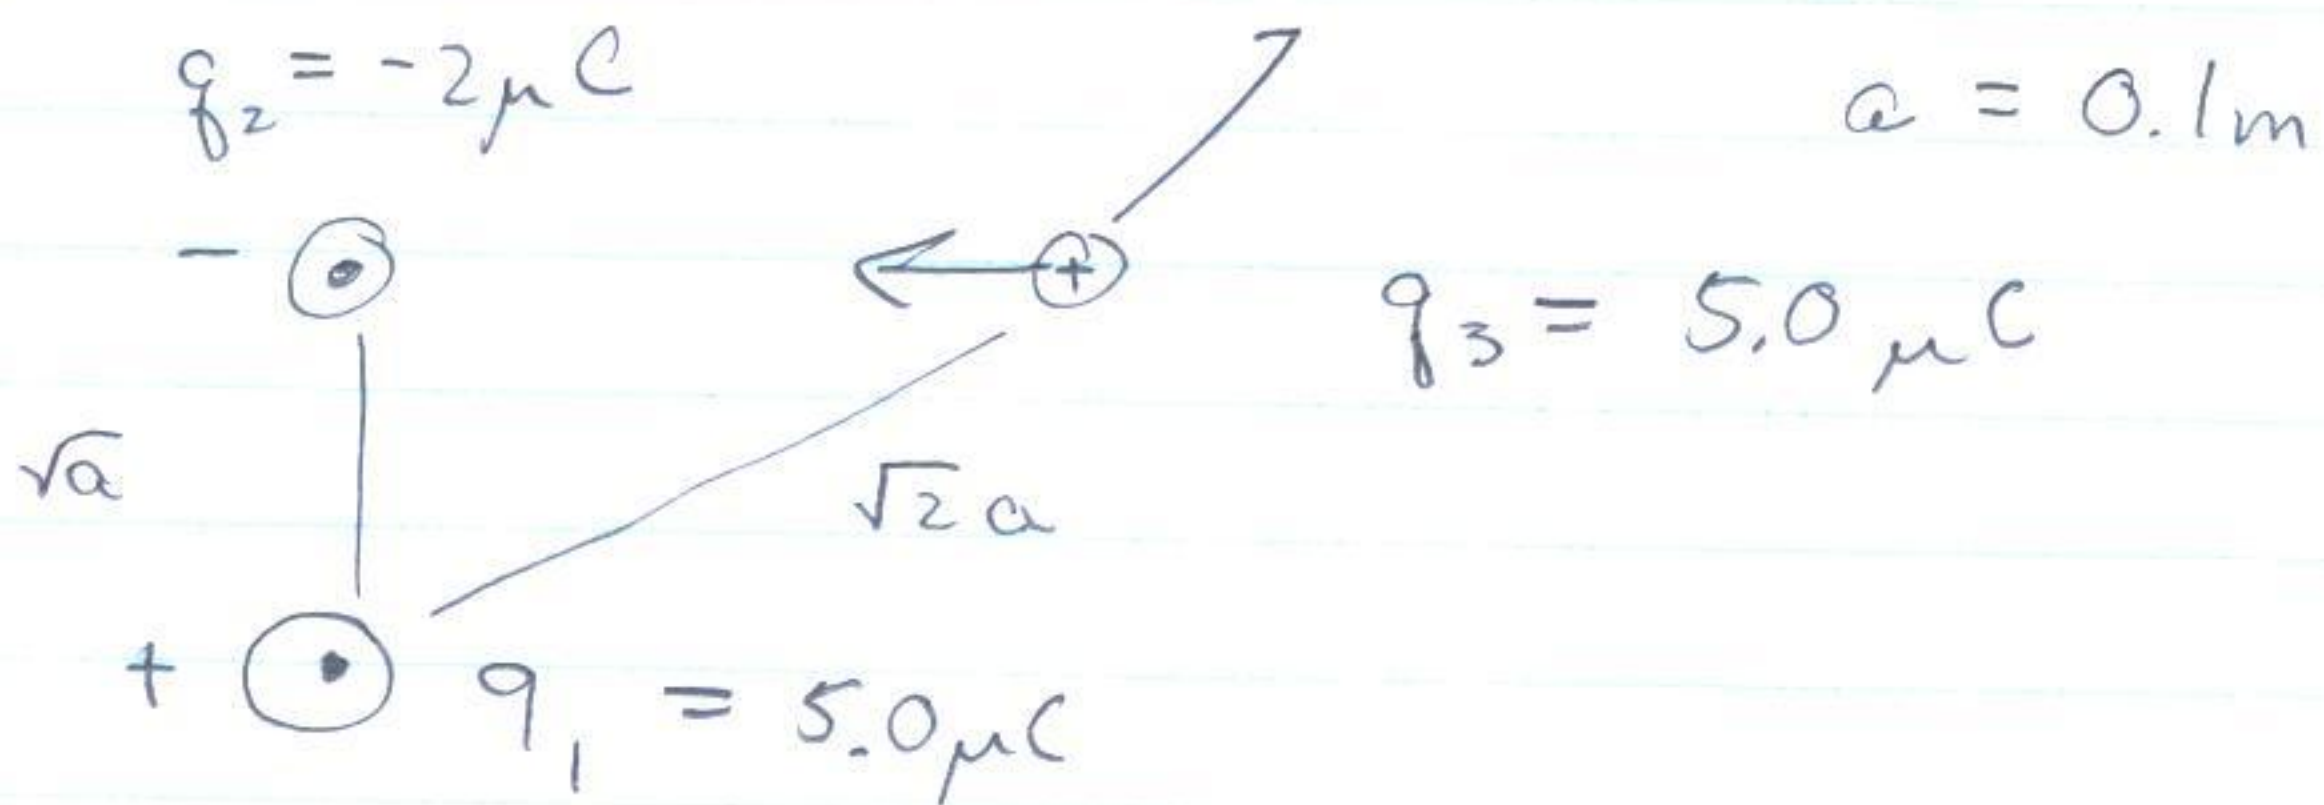 q₂ = -2μC
a = 0.1m
-
+
q₃ = 5.0 μC
√a
√2 a
+
q₁ = 5.0μC